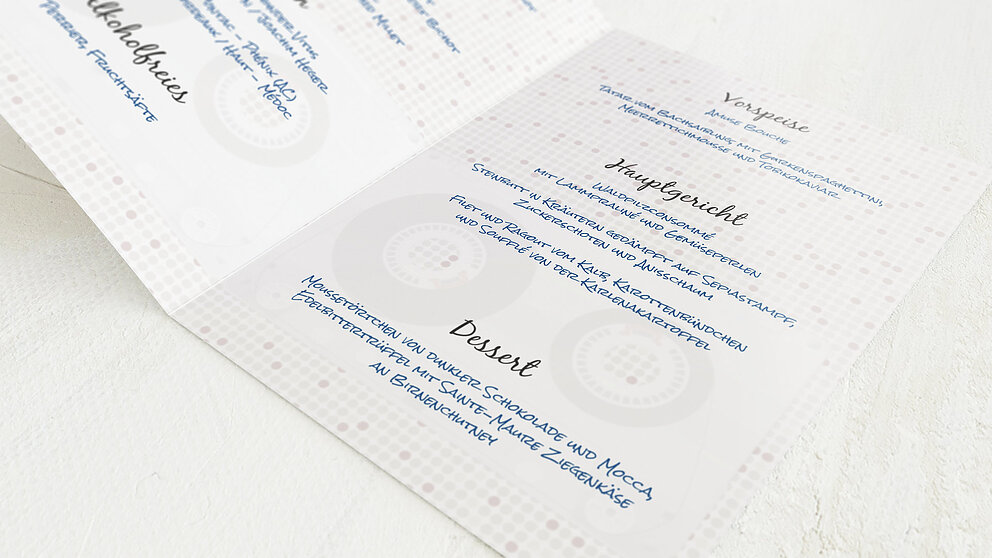 lkoholfreies
Perrier, Fruchtsäfte
Vitus
/ Joachim Heger
- Phénix (AC)
/ Haut - Médoc
Millet
Bichot
Vorspeise
Amuse Bouche
Tatar vom Bachsaibling mit Gurkenspaghettini,
Meerrettichmousse und Tobikokaviar
Hauptgericht
Waldpilzconsommé
mit Lammpraliné und Gemüseperlen
Steinbutt in Kräutern gedämpft auf Sepiastampf,
Zuckerschoten und Anisschaum
Filet und Ragout vom Kalb, Karottenbündchen
und Soufflé von der Karlenakartoffel
Dessert
Moussetörtchen von dunkler Schokolade und Mocca,
Edelbittertrüffel mit Sainte-Maure Ziegenkäse
an Birnenchutney